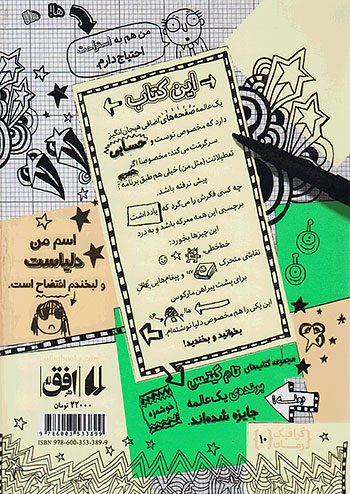 من هم به استراحت
احتیاج دارم.
این کتاب
یک عالمه صفحه‌های اضافی هیجان‌انگیز
دارد که مخصوص توست و حسابی
سرگرمت می‌کند؛ مخصوصا اگر
تعطیلاتت (مثل من) خیلی هم طبق برنامه
پیش نرفته باشد.
چه کسی فکرش را می‌کرد که یادداشت
برچسبی این همه معرکه باشد و به درد
این چیزها بخورد:
خط‌خطی،
نقاشی متحرک و پیغام‌هایی
برای پشت پیراهن مارکوس
این یکی را هم مخصوص دلیا نوشته‌ام
بخوانید و بخندید!
اسم من
دلیاست
و لبخندم افتضاح است.
مجموعه کتاب‌های تام گیتس
برنده‌ی یک عالمه
جایزه شده‌اند.
خوشمزه
افق
۲۲۰۰۰ تومان
ISBN 978-600-353-389-9
9 786003 533899
گرافیک
رمان
۱۰